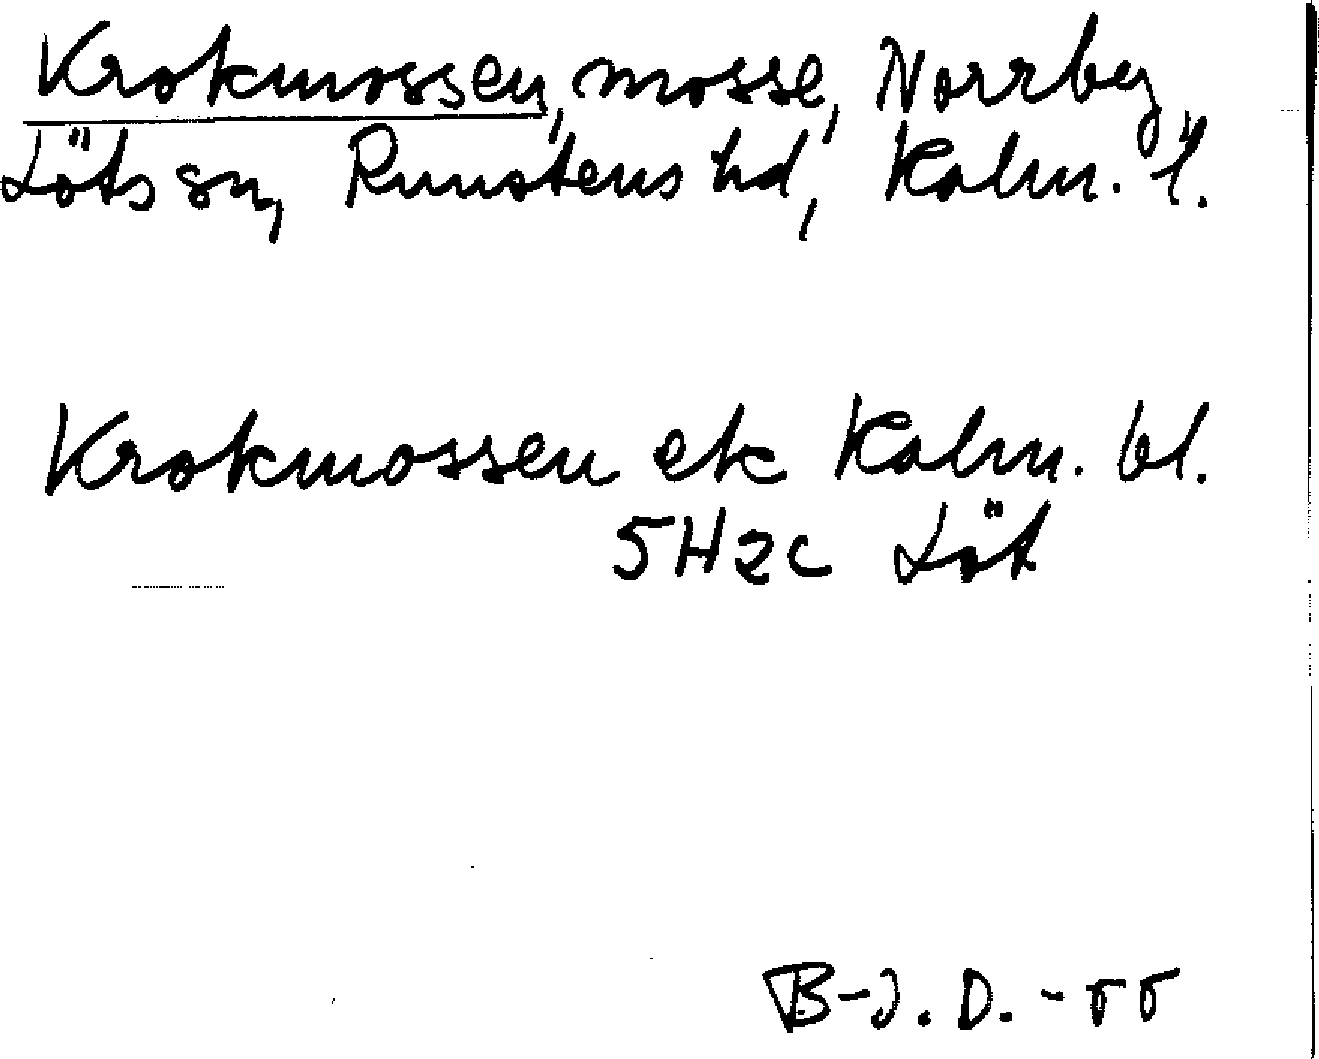 Krokmossen, mosse, Norrby,
Löts sn, Runstens hd, Kalm. l.
Krokmossen ek Kalm. bl.
5H2c Löt
B-J. D. -55